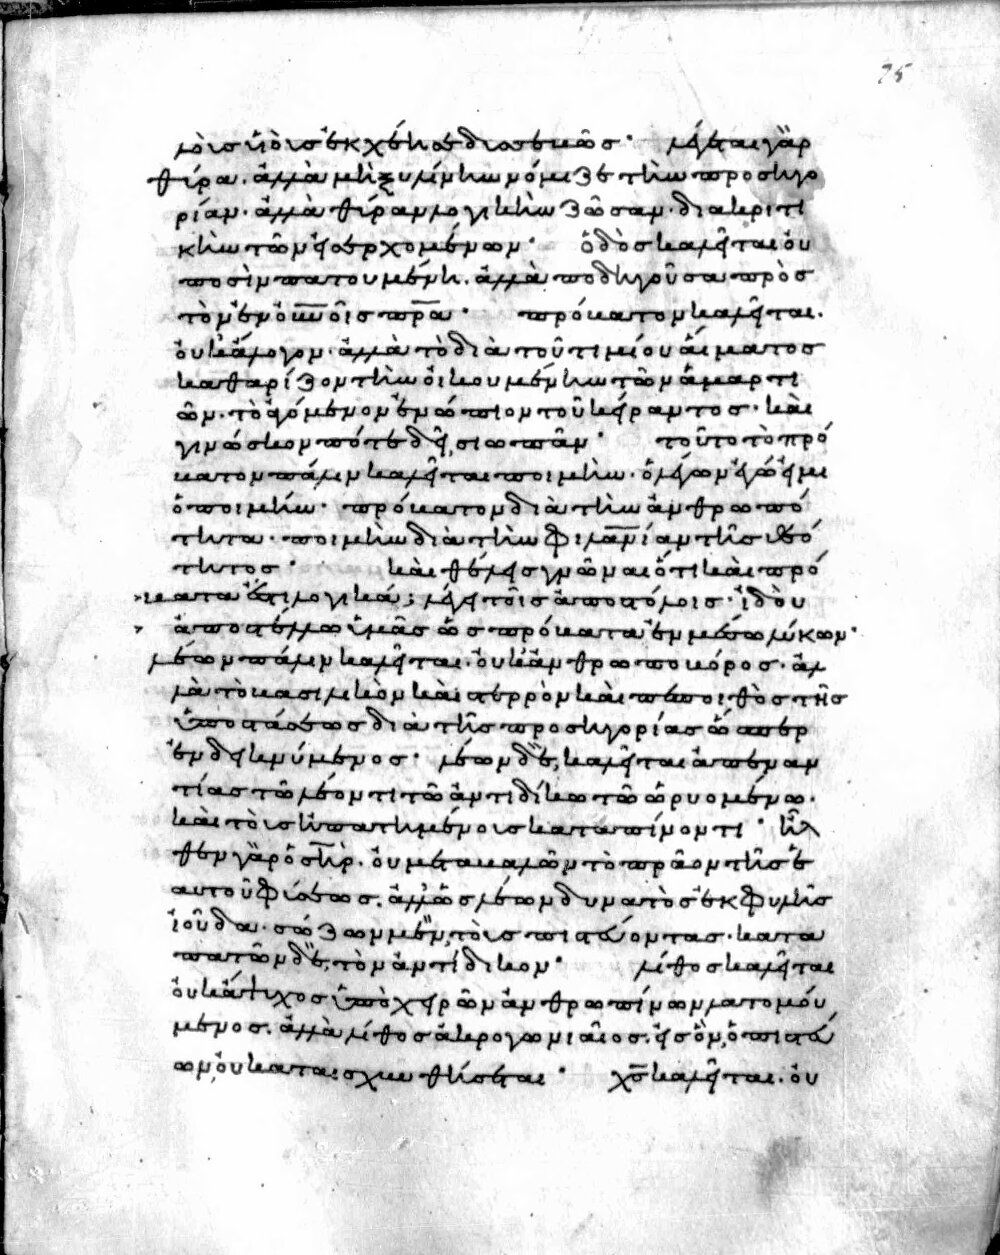 75
μὸις ἤ ὁις ἐκχέης διοσεκῶς· λέγεται γὰρ
θύρα. ἀλλὰ μὴ ξυλίνην νόμιζε τὴν προσηγο
ρίαν· ἀλλὰ θύραν λογικὴν ζῶσαν· διακριτι
κὴν τῶν εἰσερχομένων· ὁδὸς καλεῖται οὐ
ποσὶν πατουμένη. ἀλλὰ ποδηγοῦσα πρὸς
τὸν ἐν οὐνοῖς πρα· πρόβατον καλεῖται.
οὐκ ἄλογον· ἀλλὰ τὸ διὰ τοῦ τιμίου αἵματος
καθαρίζον τὴν οἰκουμένην τῶν ἁμαρτι
ῶν· τὸ ἀγόμενον ἐνώπιον τοῦ κείραντος· καὶ
γινώσκον πότε δεῖ σιωπᾶν· τοῦτο τὸ πρό
βατον πάλιν καλεῖται ποιμὴν· ὁ λέγων ἐγώ εἰμι
ὁ ποιμήν· πρόβατον διὰ τὴν ἀνθρωπό
τητα· ποιμὴν διὰ τὴν φιλανίαν τῆς θεό
τητος· καὶ θέλεις γνῶναι ὅτι καὶ πρό
βατα ἐστι λογικα; λέγει τοῖς ἀποστόλοις· ἰδοὺ
ἀποστέλλω ὑμᾶς ὡς πρόβατα ἐν μέσω λύκων·
λέων πάλιν καλεῖται. οὐκ ἀνθρωποβόρος· ἀλ
λὰ τὸ βασιλικὸν καὶ στερρὸν καὶ πεποιθὸς τῆς
ὑποστάσεως διὰ τῆς προσηγορίας ὥσπερ
ἐνδεικνύμενος· λέων δὲ, καλεῖται ἀπεναν
τίας τῶ λέοντι τῶ ἀντιδίκω τῶ ὠρυομένω·
καὶ τοὺς ἠπατημένους καταπίνοντι· ἦλ
θεν γὰρ ὁ σηρ. οὐ μεταβαλῶν τὸ πρᾶον τῆς ἑ
αυτοῦ φύσεως. ἀλλ ὡς λέων δυνατὸς ἐκ φυλῆς
ἰοῦδα· σώζων μὲν, τοὺς πιστεύοντας· κατα
πατῶν δὲ, τὸν ἀντίδικον· λίθος καλεῖται
οὐκ ἄψυχος ὑπὸ χειρῶν ἀνθρωπίνων λατομού
μενος. ἀλλὰ λίθος ἀκρογωνιαῖος. εἰς ὃν, ὁ πιστεύ
ων, οὐ καταισχυνθήσεται· χς καλεῖται. οὐ